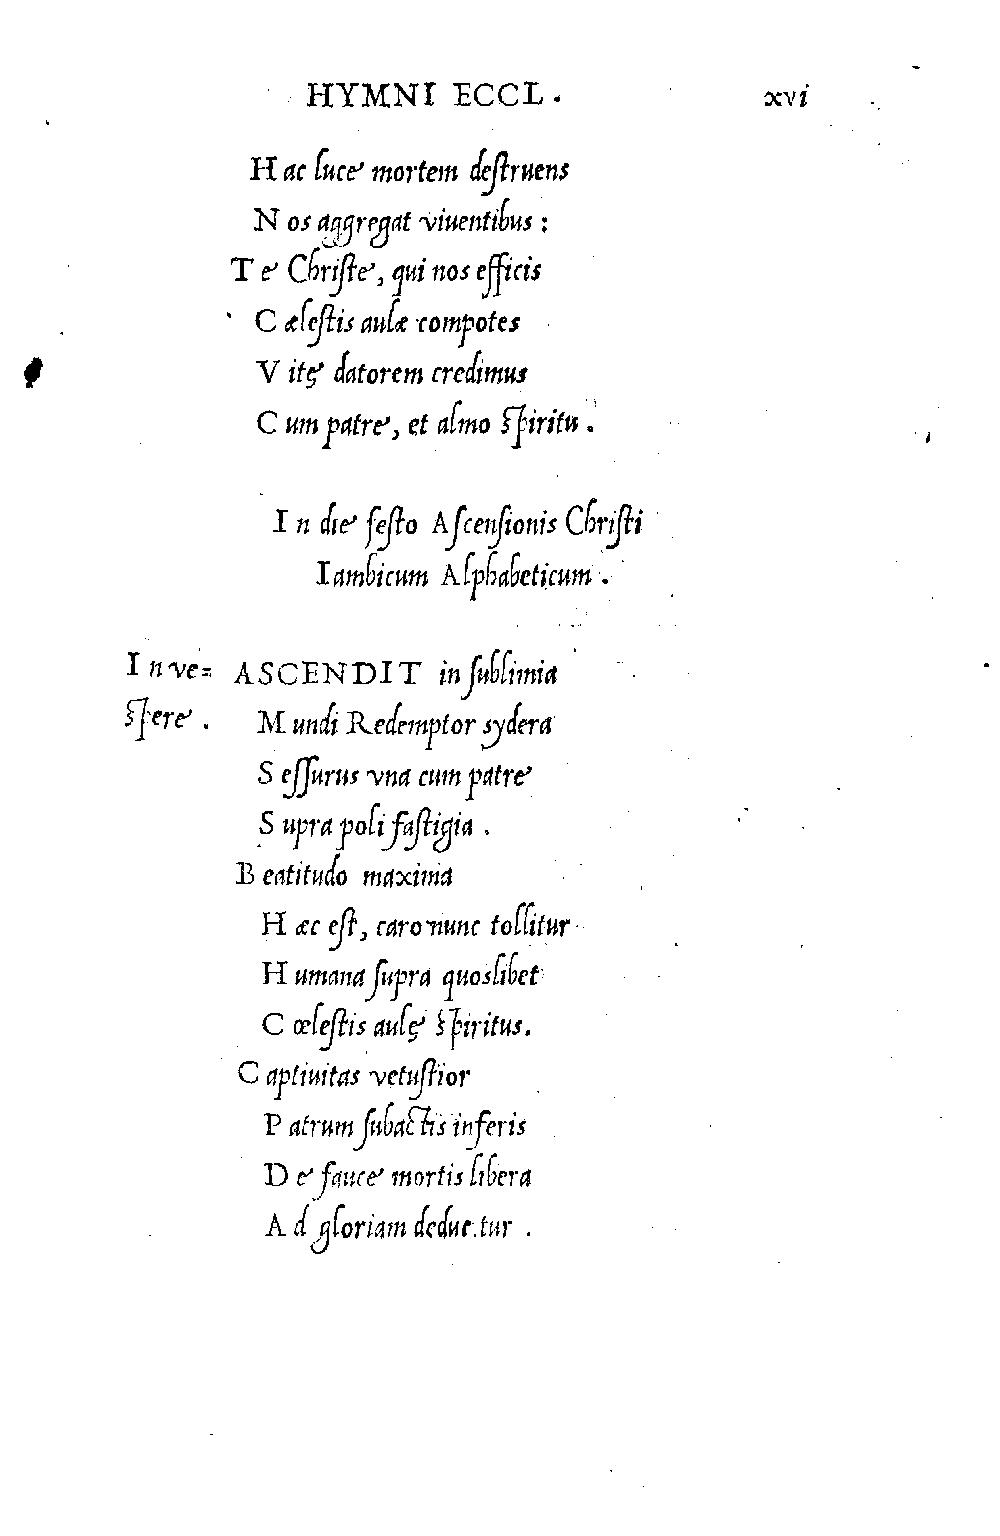 HYMNI ECCL. xvi
Hac luce mortem destruens
Nos aggregat viuentibus:
Te Christe, qui nos efficis
Cælestis aulæ compotes
Vitę datorem credimus
Cum patre, et almo spiritu.
In die festo Ascensionis Christi
Iambicum Alphabeticum.
In ve=
spere.
ASCENDIT in sublimia
Mundi Redemptor sydera
Sessurus vna cum patre
Supra poli fastigia.
Beatitudo maxima
Hæc est, caro nunc tollitur
Humana supra quoslibet
Cœlestis aulę spiritus.
Captiuitas vetustior
Patrum subactis inferis
De fauce mortis libera
Ad gloriam deductur.